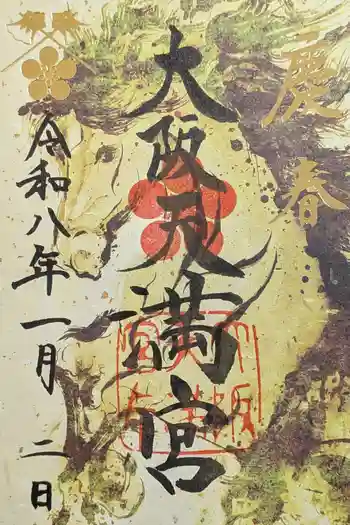 慶春
大阪天満宮
令和八年一月二日